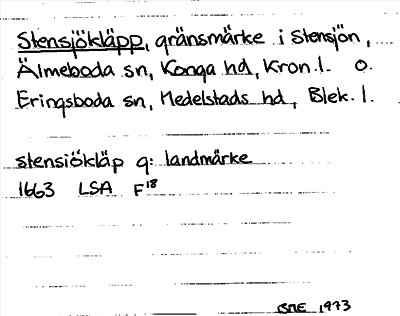 Stensjökläpp, gränsmärke i Stensjön,
Älmeboda sn, Konga hd, Kron.l. o.
Eringsboda sn, Medelstads hd, Blek.l.
stensiökläp q: landmärke
1663 LSA F18
1973